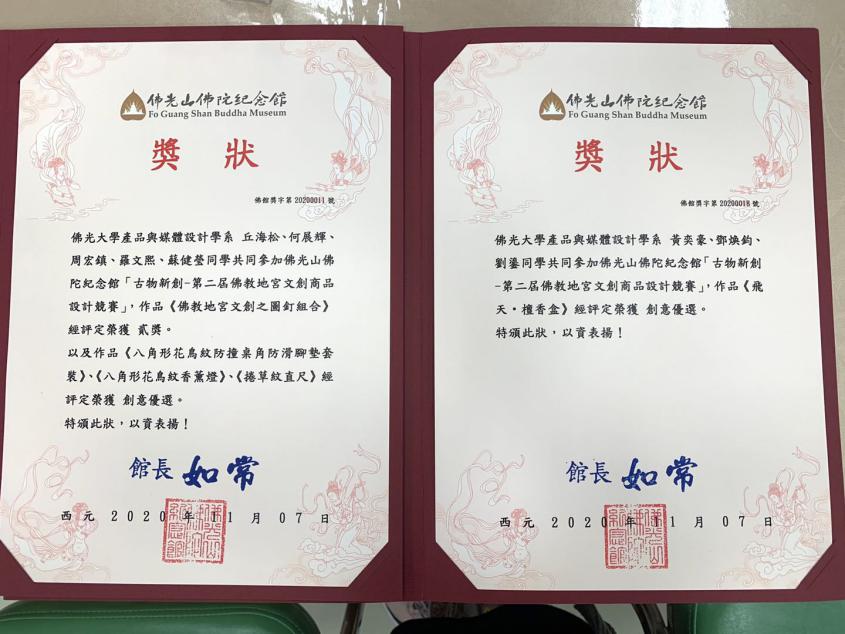 佛光山佛陀紀念館
Fo Guang Shan Buddha Museum
獎 狀
佛館獎字第 20200011 號
佛光大學產品與媒體設計學系 丘海松、何展輝、
周宏鎮、羅文熙、蘇健瑩同學共同參加佛光山佛
陀紀念館「古物新創-第二屆佛教地宮文創商品
設計競賽」,作品《佛教地宮文創之圖釘組合》
經評定榮獲 貳獎。
以及作品《八角形花鳥紋防撞桌角防滑腳墊套
裝》、《八角形花鳥紋香薰燈》、《捲草紋直尺》經
評定榮獲 創意優選。
特頒此狀,以資表揚!
館長 如常
西元 2020 年 11 月 07 日
佛光山佛陀紀念館
Fo Guang Shan Buddha Museum
獎 狀
佛館獎字第 20200018 號
佛光大學產品與媒體設計學系 黃奕豪、鄧煥鈞、
劉鎏同學共同參加佛光山佛陀紀念館「古物新創
-第二屆佛教地宮文創商品設計競賽」,作品《飛
天・檀香盒》經評定榮獲 創意優選。
特頒此狀,以資表揚!
館長 如常
西元 2020 年 11 月 07 日